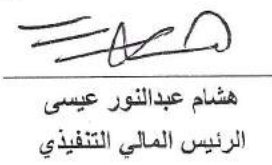 هشام عبدالنور عيسى
الرئيس المالي التنفيذي